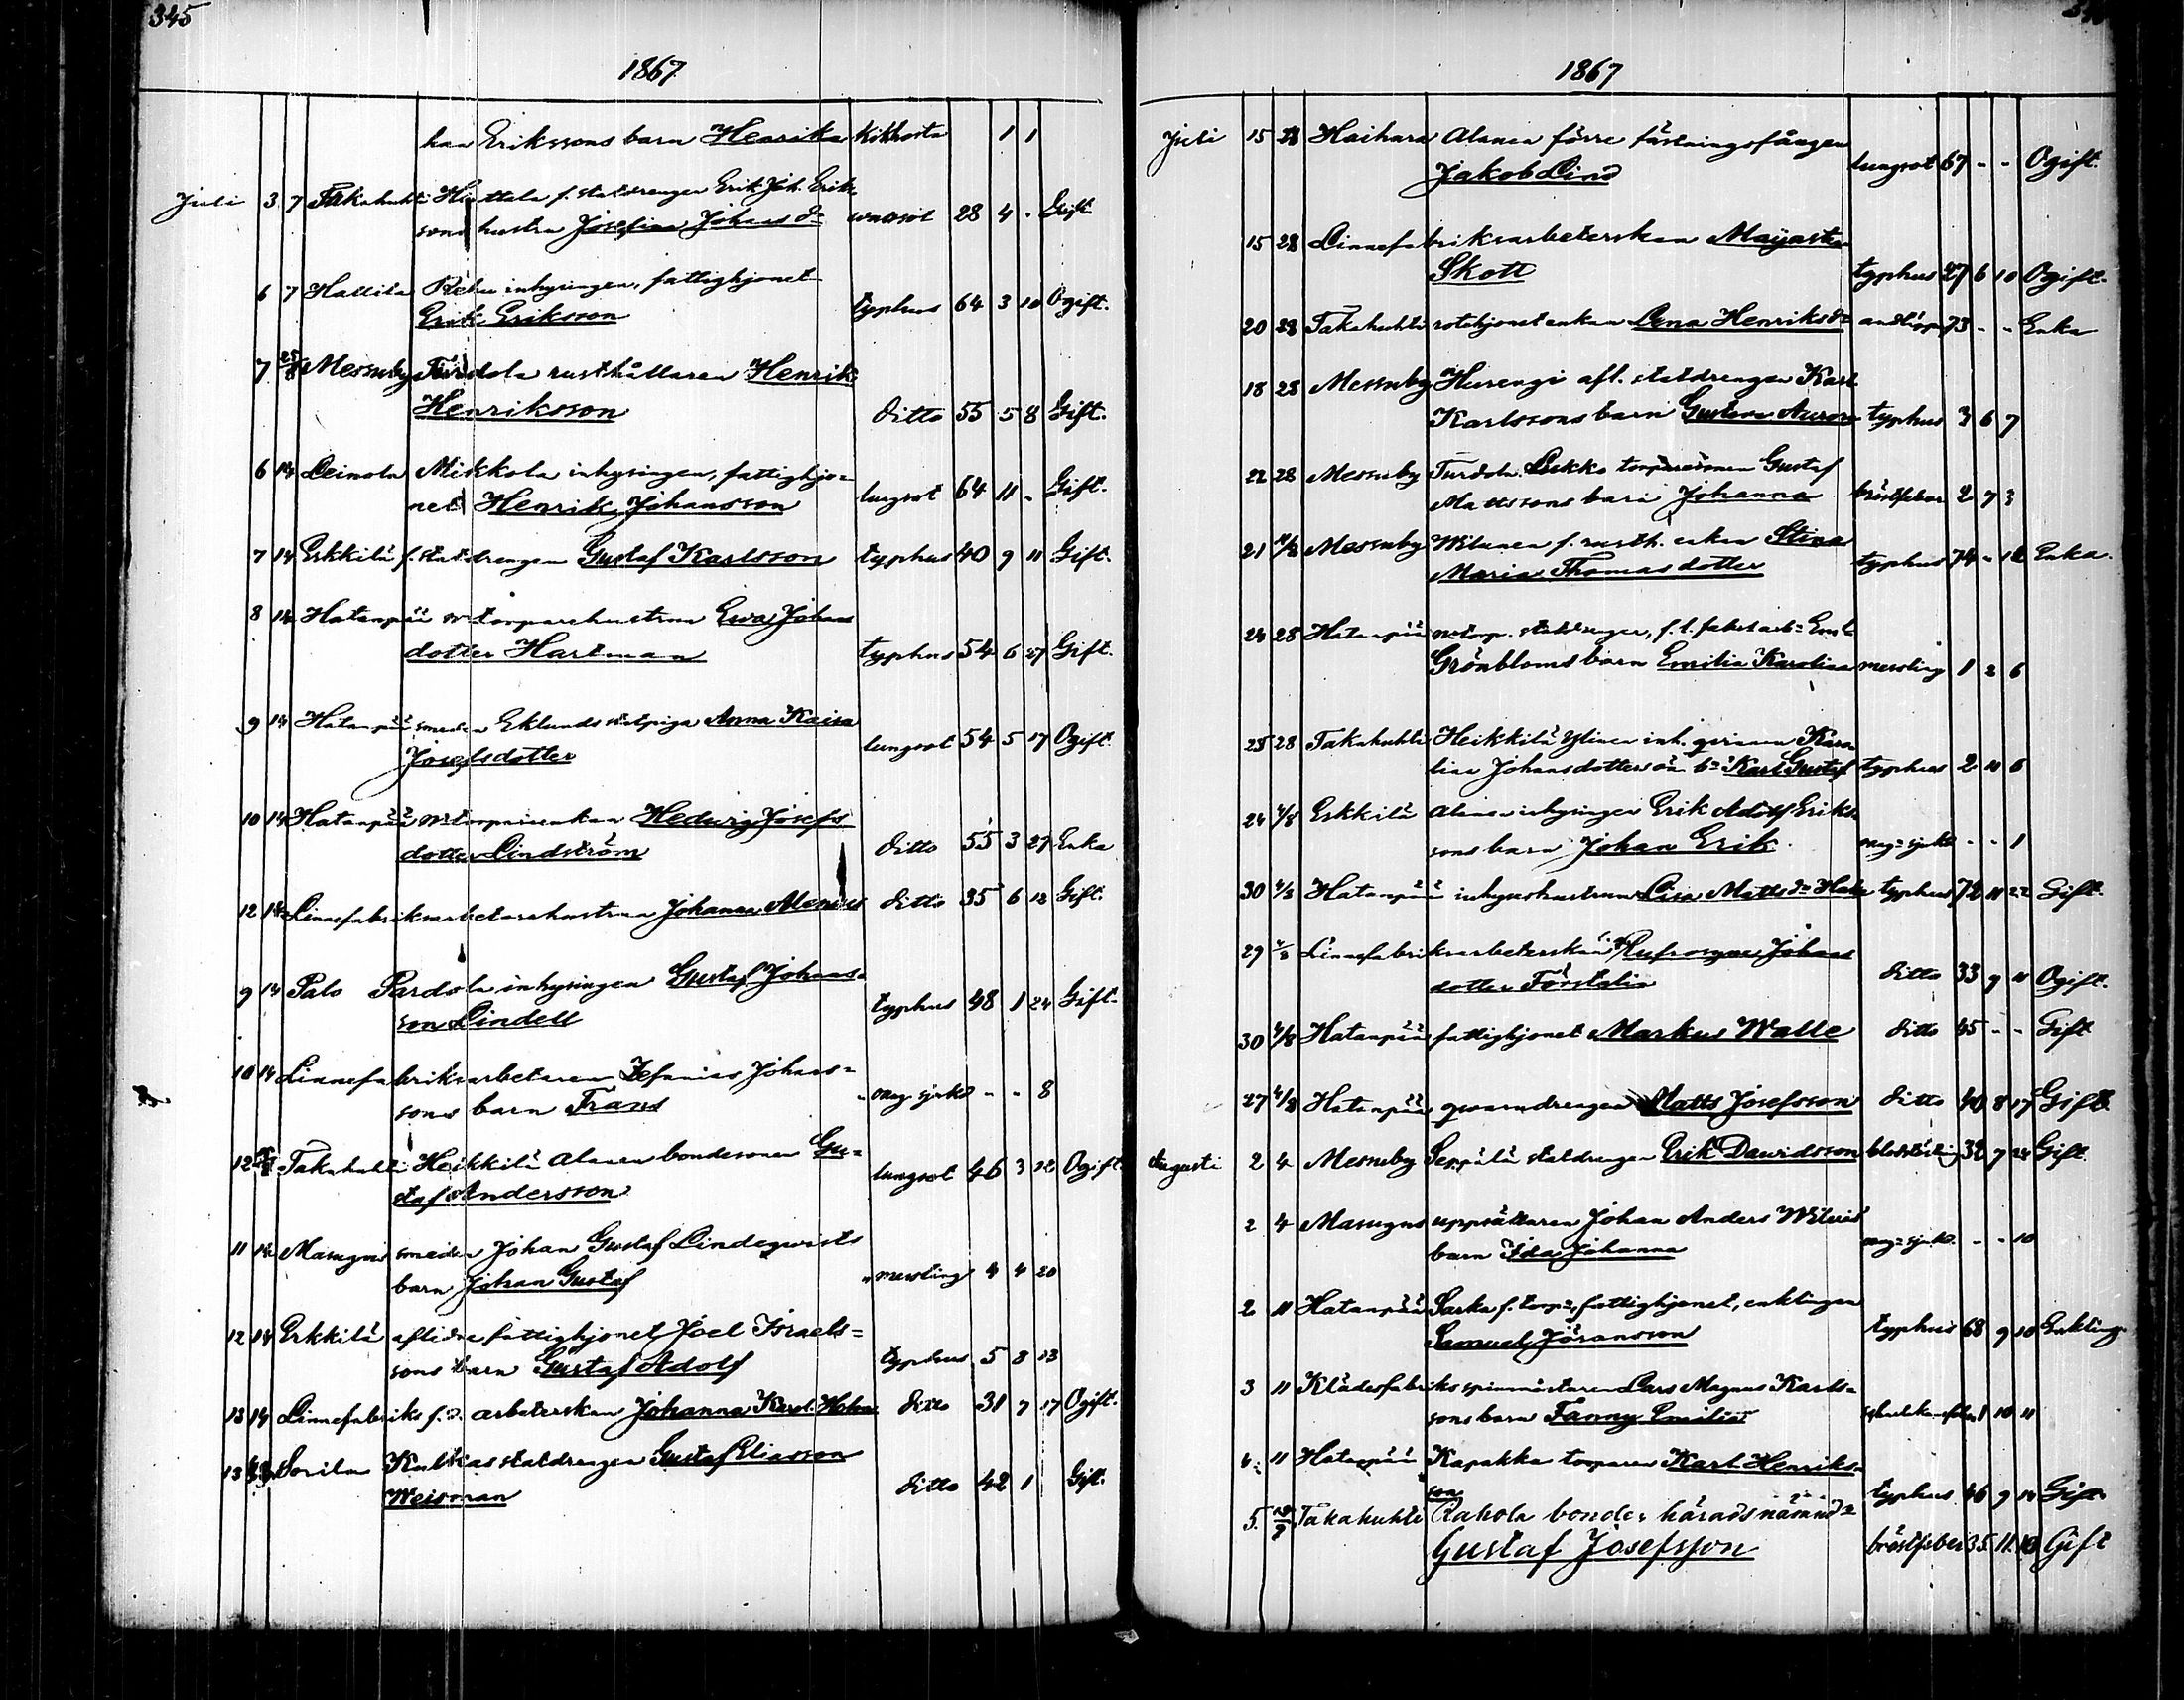 345
1867
han Erikssons barn Henrika Kikhosta 1 1
Juli 3 7 Takahuhti Huttala f. statdrengen Erik Joh. Eriks
sons hustru Josefina Johans dr 28 4 - Gift.
6 7 Hallila Rehu inhysingen, fattighjonet
Erik Eriksson typhus 64 3 10 Ogift.
7 25/8 Messuby Turdola rusthållaren Henrik
Henriksson ditto 55 5 8 Gift.
6 14 Leinola Mikkola inhysingen, fattighjo=
net Henrik Johansson lungsot 64 11 - Gift.
7 14 Erkkilä f. statdrengen Gustaf Karlsson typhus 40 9 11 Gift.
8 14 Hatanpää torparehustrun Ewa Johans
dotter Hartman typhus 54 6 27 Gift.
9 14 Hatanpää smeden Eklunds statpiga Anna Kaisa
Josefsdotter lungsot 54 5 17 Ogift.
10 14 Hatanpää torpareenkan Hedwig Josefs
dotter Lindström ditto 55 3 29 Enka
12 14 Linnefabriksarbetarehustrun Johanna ditto 35 6 12 Gift.
9 14 Palo Pardola inhysingen Gustaf Johans=
son Lindell typhus 48 1 24 Gift.
10 14 Linnefabriksarbetaren Zefanias Johans=
sons barn Frans sjukd - - 8
12 Takahuhti Heikkilä Alanen bondesonen Gu=
staf Andersson lungsot 46 3 12 Ogift.
11 14 Masugns smeden Johan Gustaf Lindeqwists
barn Johan Gustaf messling 4 4 20
12 14 Erkkilä aflidne fattighjonet Joel Israels=
sons barn Gustaf Adolf typhus 5 8 13
13 14 Linnefabriks f.d. arbeterskan Johanna Karol. ditto 31 7 17 Ogift.
13 Sorila statdrengen Gustaf Eliasson
Weisman ditto 42 1 Gift.
1867
Juli 15 28 Haihara Alanen förre fästningsfången
Jakob Lind lungsot 67 - - Ogift.
15 28 Linnefabriksarbeterskan Majastina
Skott typhus 27 6 10 Ogift.
20 28 Takahuhti rotehjonet enkan Lena Henriksdr 73 - - Enka
18 28 Messuby Hurengi afl. statdrengen Karl
Karlssons barn Gustava Aurora typhus 3 6 7
22 28 Messuby Turdola Lukko torparesonen Gustaf
Mattssons barn Johanna bröstfeber 2 7 3
21 11/8 Messuby Wilunen f. rusth. enkan Stina
Maria Thomasdotter typhus 74 - 12 Enka.
24 28 Hatanpää
Grönbloms barn Emilia Karolina messling 1 2 6
25 28 Takahuhti Heikkilä Ylinen inh. qvinnan Karo
lina Johansdotters oä bn Karl Gustaf typhus 2 11 6
24 4/8 Erkkilä Alanen inhysingen Erik Adolf Eriks
sons barn Johan Erik sjukd - - 1
30 4/8 Hatanpää inhyseshustrun Lisa Mattsdr typhus 72 11 22 Gift.
29 4/8 Linnefabriksarbeterskan Eufrosyne Johans
dotter Forstelin ditto 33 9 11 Ogift.
30 4/8 Hatanpää fattighjonet Markus Walle ditto 45 - - Gift
27 4/8 Hatanpää qvarndrengen Matts Josefsson ditto 40 8 17 Gift
Augusti 2 4 Messuby Seppälä statdrengen Erik Dawidsson 32 7 24 Gift.
2 4 Masugns uppsättaren Johan Anders
barn Ida Johanna sjukd. - - 10
2 11 Hatanpää Sarka f. torp., fattighjonet, enklingen
Samuel Göransson typhus 68 9 10 Enkling
3 11 Klädesfabriks spinnmästaren Lars Magnus Karls=
sons barn Fanny Emilia 1 10 11
4 11 Hatanpää Kapakka torparen Karl Henriks=
son typhus 46 9 14 Gift
5. Takahuhti Rahola bonden häradsnämnd=
Gustaf Josefsson bröstfeber 35. 11. 13 Gift